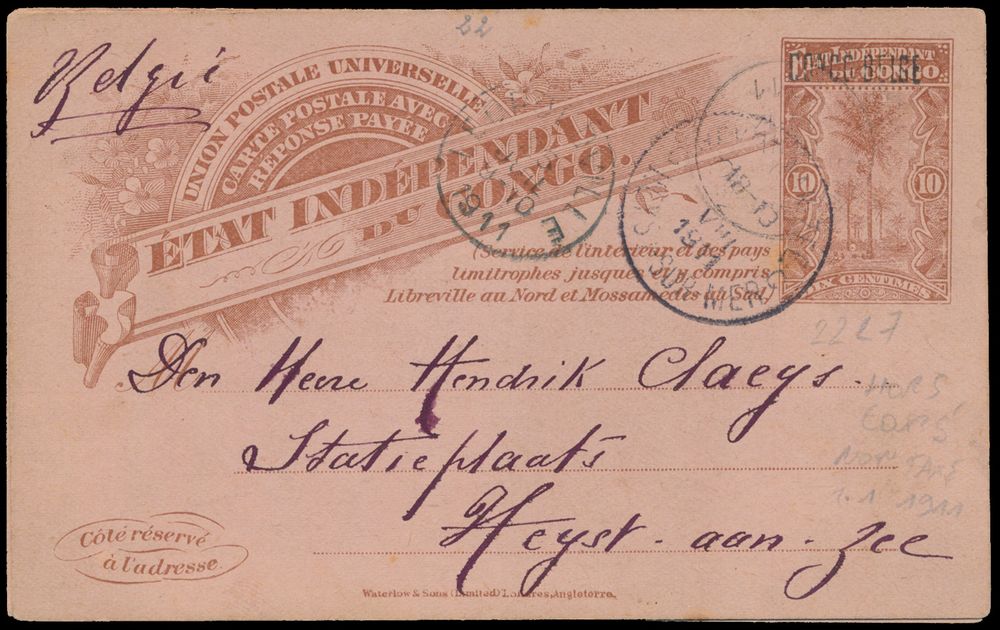 22
België
UNION POSTALE UNIVERSELLE
CARTE POSTALE AVEC
RÉPONSE PAYÉE
ÉTAT INDÉPENDANT
DU CONGO.
ÉTAT INDÉPENDANT
DU CONGO
CONGO BELGE
10 10
DIX CENTIMES
10
1911
VIII
1911
SUR MER
(Service de l'intérieur et des pays
limitrophes jusques et y compris
Libreville au Nord et Mossamédès au Sud)
M
Den Heere Hendrik Claeys.
Statieplaats
Heyst-aan-zee
HORS
COURS
NON TAXÉ
1.1 1911
Côté réservé
à l'adresse.
Waterlow & Sons (Limited) Londres, Angleterre.